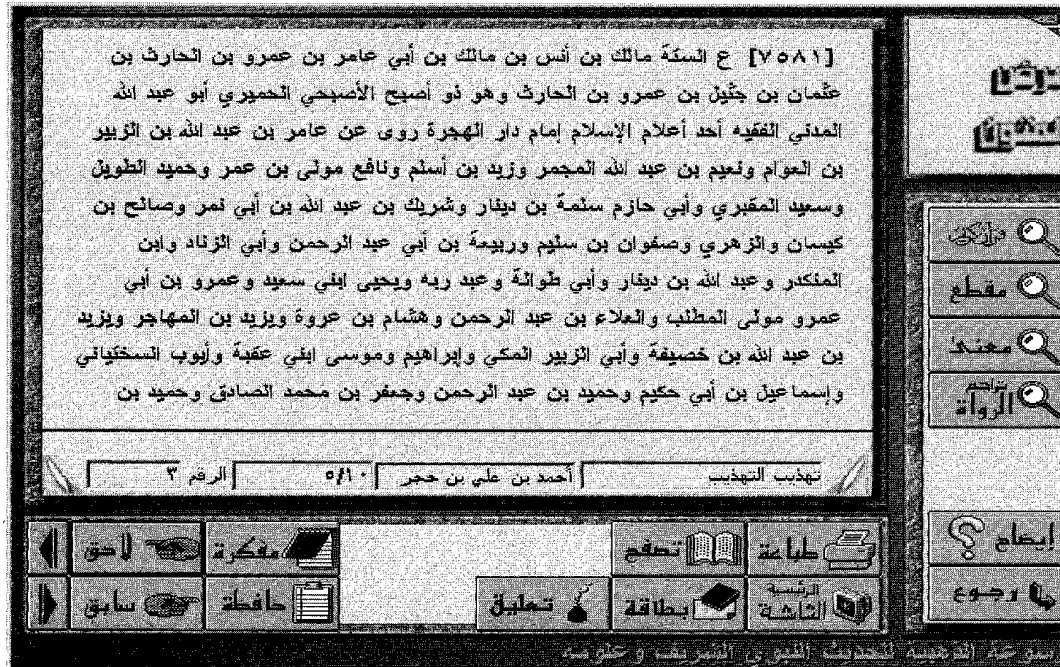 [٧٥٨١] ع الستة مالك بن أنس بن مالك بن أبي عامر بن عمرو بن الحارث بن
عثمان بن جثيل بن عمرو بن الحارث وهو ذو أصبح الأصبحي الحميري أبو عبد الله
المدني الفقيه أحد أعلام الإسلام إمام دار الهجرة روى عن عامر بن عبد الله بن الزبير
بن العوام ونعيم بن عبد الله المجمر وزيد بن أسلم ونافع مولى بن عمر وحميد الطويل
وسعيد المقبري وأبي حازم سلمة بن دينار وشريك بن عبد الله بن أبي نمر وصالح بن
كيسان والزهري وصفوان بن سليم وربيعة بن أبي عبد الرحمن وأبي الزناد وابن
المنكدر وعبد الله بن دينار وأبي طوالة وعبد ربه ويحيى ابني سعيد وعمرو بن أبي
عمرو مولى المطلب والعلاء بن عبد الرحمن وهشام بن عروة ويزيد بن المهاجر ويزيد
بن عبد الله بن خصيفة وأبي الزبير المكي وإبراهيم وموسى ابني عقبة وأيوب السختياني
وإسماعيل بن أبي حكيم وحميد بن عبد الرحمن وجعفر بن محمد الصادق وحميد بن
تهذيب التهذيب أحمد بن علي بن حجر ٥/١٠ الرقم ٣
مقطع
معنى
تراجم الرواة
إيضاح
رجوع
طباعة تصفح مفكرة لاحق
الشاشة الرئيسة بطاقة تعليق حافظة سابق
الذهبية للحديث النبوي الشريف وعلومه